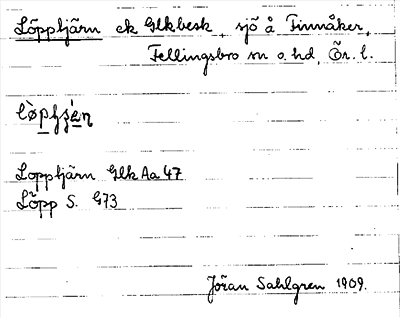 Löpptjärn ek Glkbesk, sjö å Finnåker,
Fellingsbro sn o. hd, Ör. l.
Lopptjärn Glk Aa 47
Löpp S. G73
Jöran Sahlgren 1909.